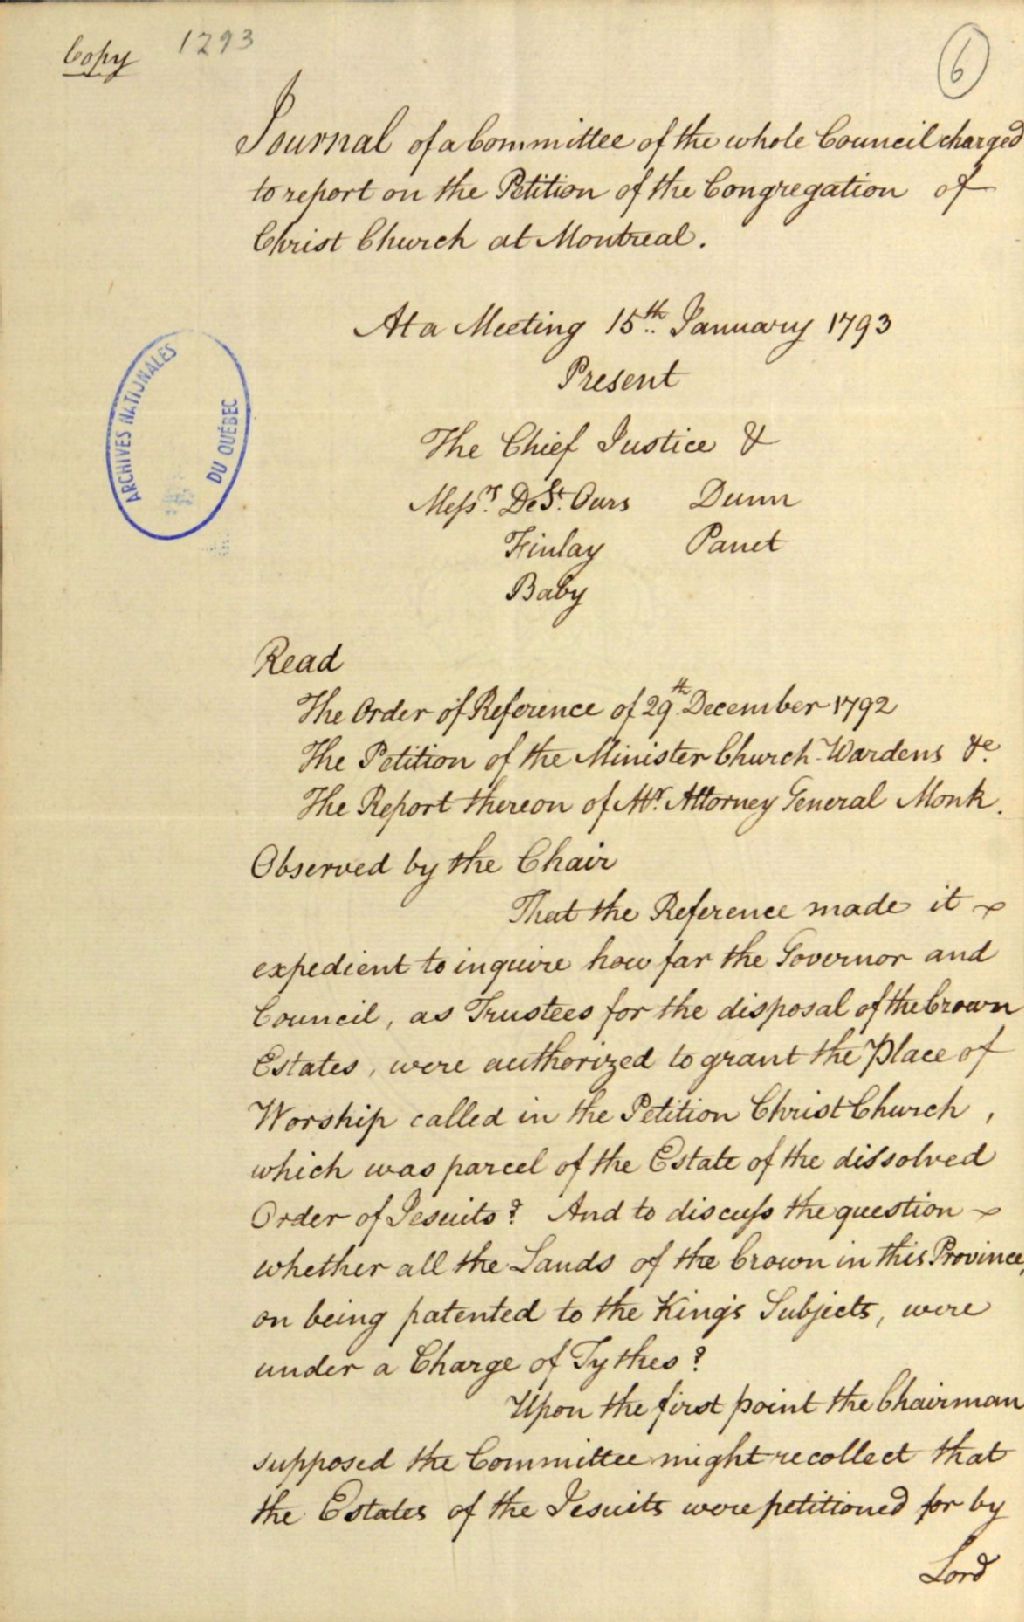 Copy 1293
6
Journal of a Committee of the whole Council charged
to report on the Petition of the Congregation of
Christ Church at Montreal.
At a Meeting 15th January 1793
Present
The Chief Justice &
Messrs. De St. Ours Dunn
Finlay Panet
Baby
ARCHIVES NATIONALES
DU QUÉBEC
Read
The Order of Reference of 29th December 1792
The Petition of the Minister Church-Wardens &c.
The Report thereon of Mr. Attorney General Monk.
Observed by the Chair
That the Reference made it
expedient to inquire how far the Governor and
Council, as Trustees for the disposal of the Crown
Estates, were authorized to grant the Place of
Worship called in the Petition Christ Church,
which was parcel of the Estate of the dissolved
Order of Jesuits? And to discuss the question
whether all the Lands of the Crown in this Province,
on being patented to the King's Subjects, were
under a Charge of Tythes?
Upon the first point the Chairman
supposed the Committee might recollect that
the Estates of the Jesuits were petitioned for by
Lord